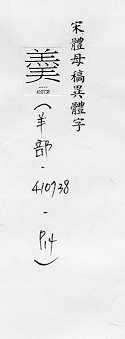 宋體母稿異體字
(羊部-410738-P14)